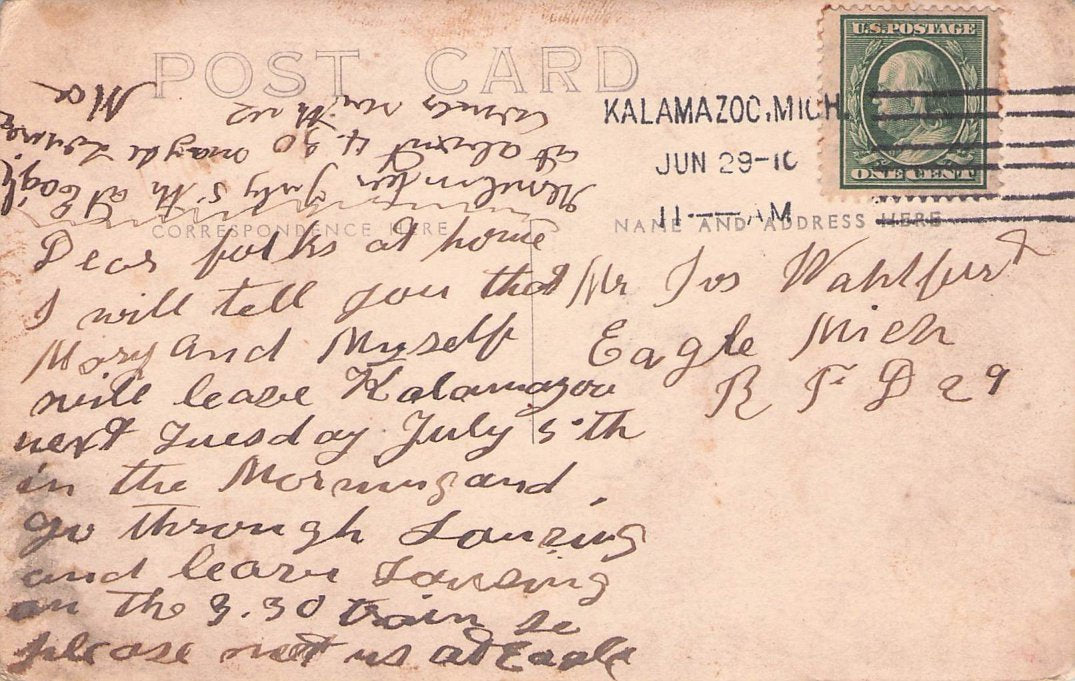 POST CARD
CORRESPONDENCE HERE
NAME AND ADDRESS HERE
U.S. POSTAGE
ONE CENT
KALAMAZOO, MICH.
JUN 29-10
11 — AM
Mr Jos Wahlfurt
Eagle Mich
R F D 29
Dear folks at home
I will tell you that
Mary and Myself
will leave Kalamazoo
next Tuesday July 5th
in the Morning and
go through Lansing
and leave Lansing
on the 3.30 train so
please meet us at Eagle
Remember July 5th at Eagle
at about 4.30 maybe